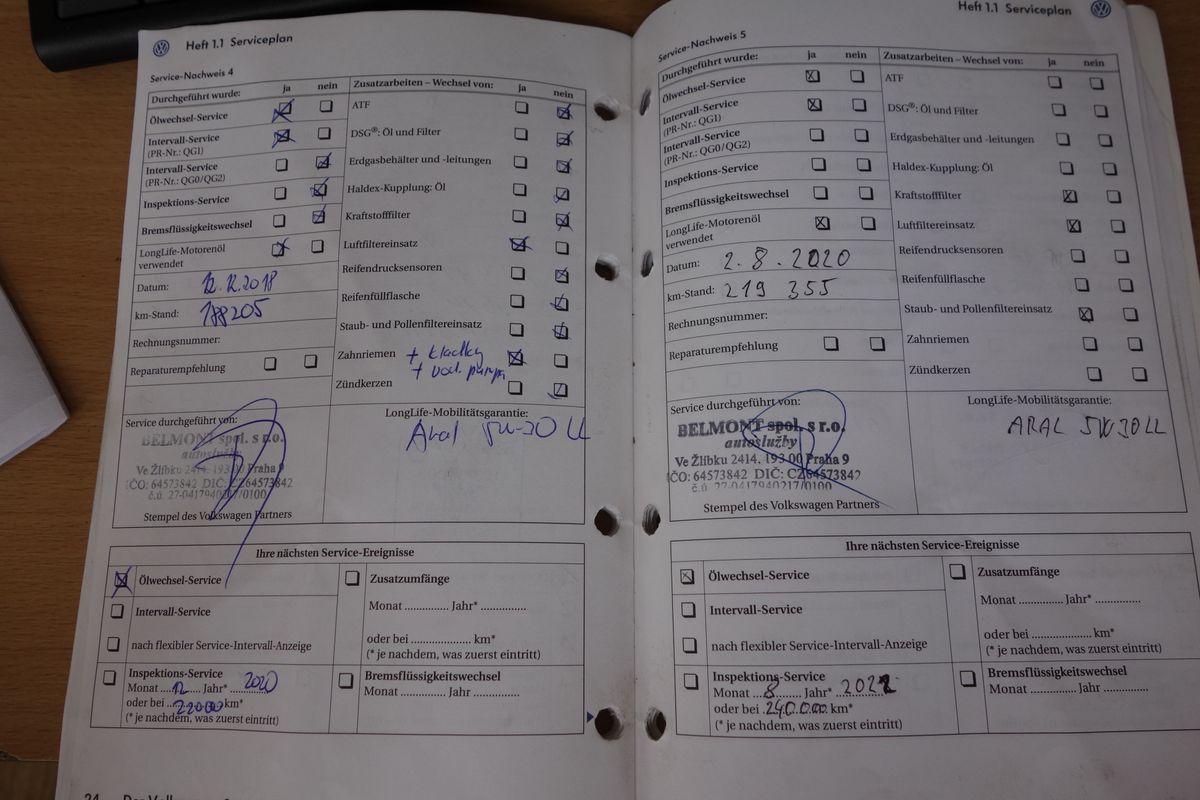 Heft 1.1 Serviceplan
Service-Nachweis 4
Durchgeführt wurde: ja nein
Ölwechsel-Service
Intervall-Service
(PR-Nr.: QG1)
Intervall-Service
(PR-Nr.: QG0/QG2)
Inspektions-Service
Bremsflüssigkeitswechsel
LongLife-Motorenöl
verwendet
Datum: 12.12.2018
km-Stand: 188205
Rechnungsnummer:
Reparaturempfehlung
Zusatzarbeiten – Wechsel von: ja nein
ATF
DSG®: Öl und Filter
Erdgasbehälter und -leitungen
Haldex-Kupplung: Öl
Kraftstofffilter
Luftfiltereinsatz
Reifendrucksensoren
Reifenfüllflasche
Staub- und Pollenfiltereinsatz
Zahnriemen + kladky
+ vod. pumpa
Zündkerzen
Service durchgeführt von:
BELMONT spol. s r.o.
autoslužby
Ve Žlíbku 2414, 193 00 Praha 9
IČO: 64573842 DIČ: CZ64573842
č.ú. 27-0417940217/0100
Stempel des Volkswagen Partners
LongLife-Mobilitätsgarantie:
Aral 5W-30 LL
Ihre nächsten Service-Ereignisse
Ölwechsel-Service
Intervall-Service
nach flexibler Service-Intervall-Anzeige
Inspektions-Service
Monat ....12.... Jahr* ....2020
oder bei ....22000 km*
(* je nachdem, was zuerst eintritt)
Zusatzumfänge
Monat .............. Jahr* ..............
oder bei ................... km*
(* je nachdem, was zuerst eintritt)
Bremsflüssigkeitswechsel
Monat .............. Jahr ..............
Heft 1.1 Serviceplan
Service-Nachweis 5
Durchgeführt wurde: ja nein
Ölwechsel-Service
Intervall-Service
(PR-Nr.: QG1)
Intervall-Service
(PR-Nr.: QG0/QG2)
Inspektions-Service
Bremsflüssigkeitswechsel
LongLife-Motorenöl
verwendet
Datum: 2.8.2020
km-Stand: 219 355
Rechnungsnummer:
Reparaturempfehlung
Zusatzarbeiten – Wechsel von: ja nein
ATF
DSG®: Öl und Filter
Erdgasbehälter und -leitungen
Haldex-Kupplung: Öl
Kraftstofffilter
Luftfiltereinsatz
Reifendrucksensoren
Reifenfüllflasche
Staub- und Pollenfiltereinsatz
Zahnriemen
Zündkerzen
Service durchgeführt von:
BELMONT spol. s r.o.
autoslužby
Ve Žlíbku 2414, 193 00 Praha 9
IČO: 64573842 DIČ: CZ64573842
č.ú. 27-0417940217/0100
Stempel des Volkswagen Partners
LongLife-Mobilitätsgarantie:
ARAL 5W30LL
Ihre nächsten Service-Ereignisse
Ölwechsel-Service
Intervall-Service
nach flexibler Service-Intervall-Anzeige
Inspektions-Service
Monat ....8.... Jahr* ..2022
oder bei .240.000. km*
(* je nachdem, was zuerst eintritt)
Zusatzumfänge
Monat .............. Jahr* ..............
oder bei ................... km*
(* je nachdem, was zuerst eintritt)
Bremsflüssigkeitswechsel
Monat .............. Jahr ..............